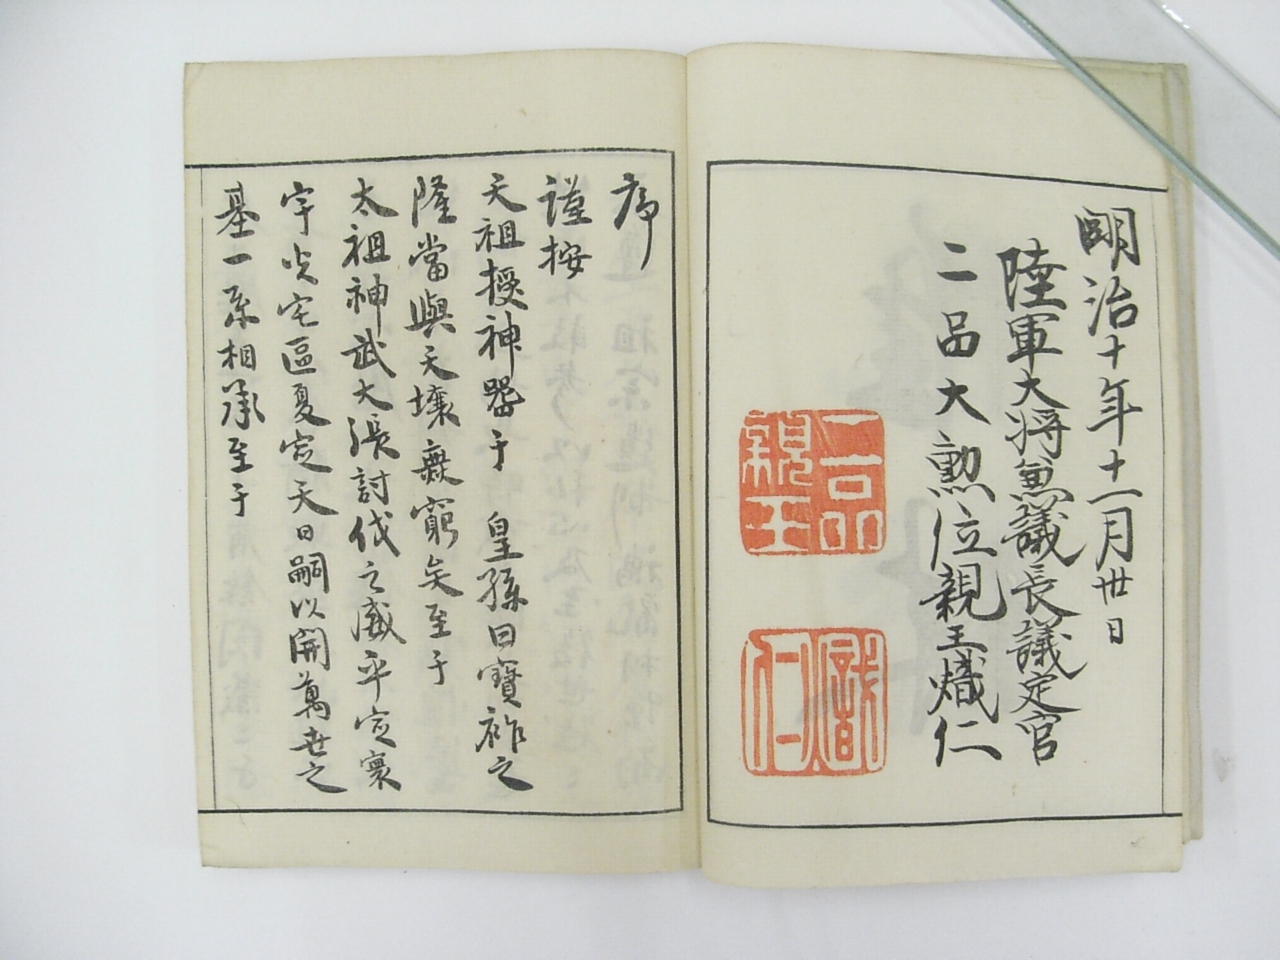 明治十年十一月廿日
陸軍大将兼議長議定官
二品大勲位親王熾仁
二品
親王
熾
仁
序
謹按
天祖授神器于 皇孫曰寶祚之
隆當與天壤無窮矣至于
太祖神武大張討伐之威平定寰
宇奠宅區夏定天日嗣以開萬世之
基一系相承至于